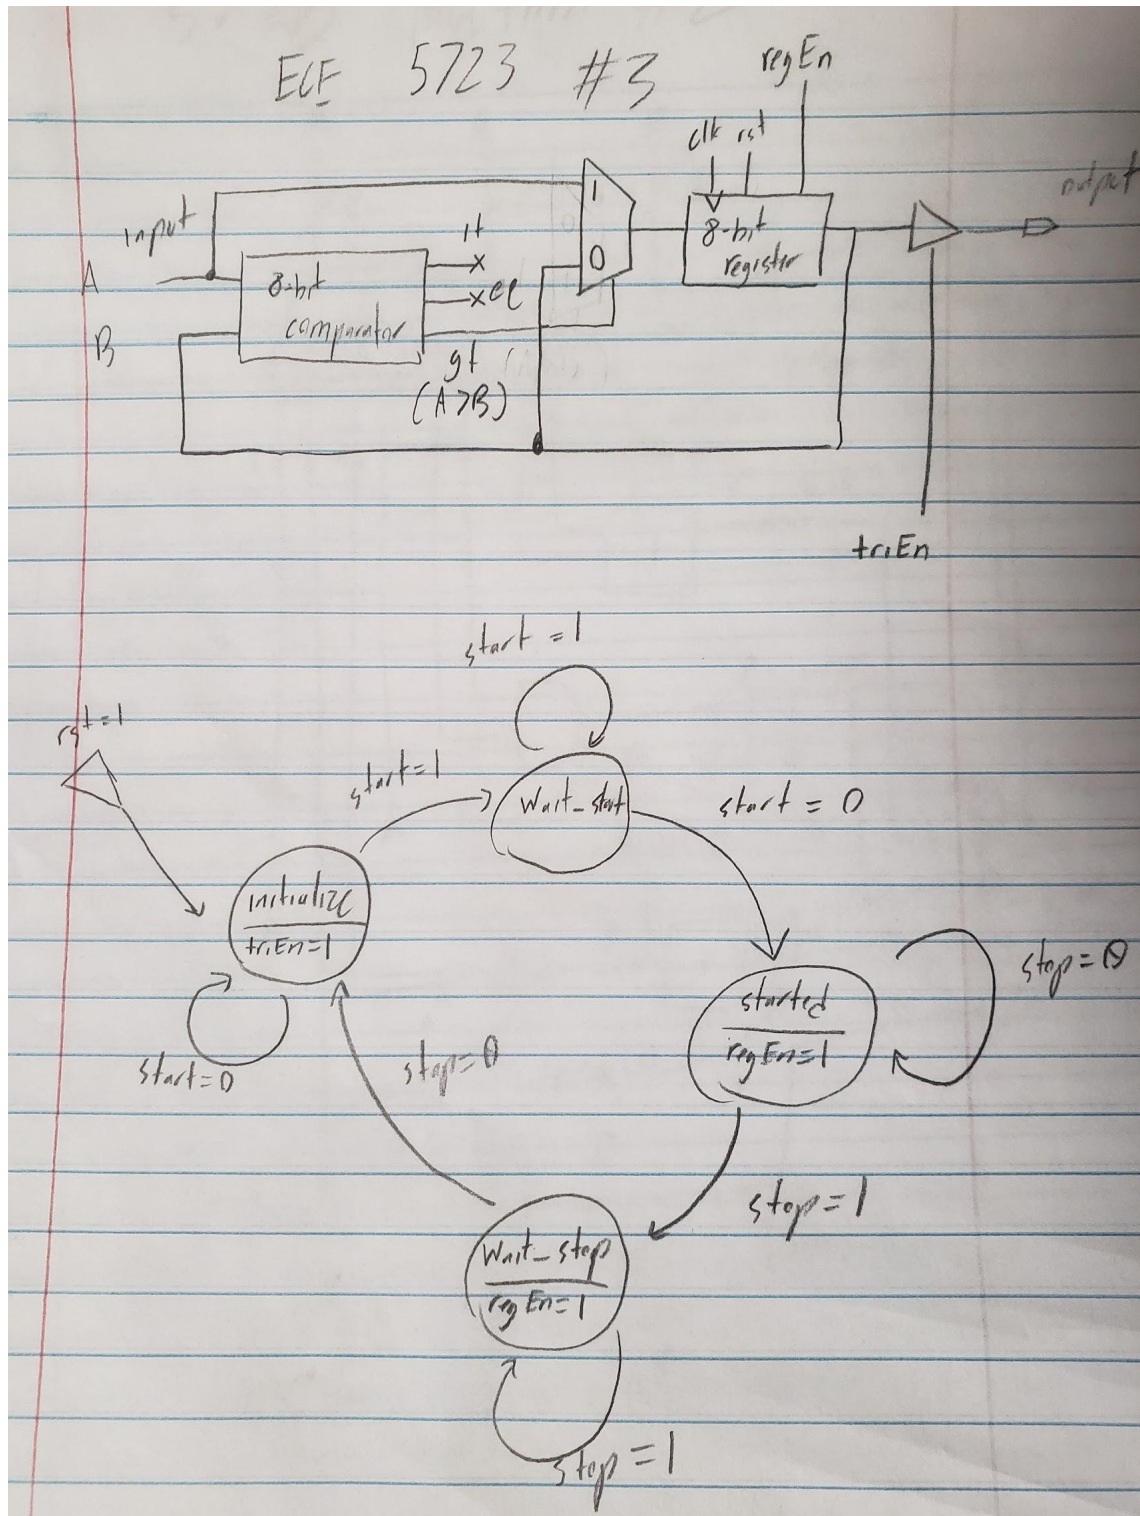 ECE 5723 #3
regEn
clk rst
output
input
1
lt
8-bit
register
A
0
8-bit
eq
comparator
B
gt
(A>B)
triEn
start = 1
rst=1
start=1
Wait_start
start = 0
initialize
triEn=1
stop=0
started
regEn=1
stop=0
start=0
stop=1
Wait_stop
regEn=1
stop=1